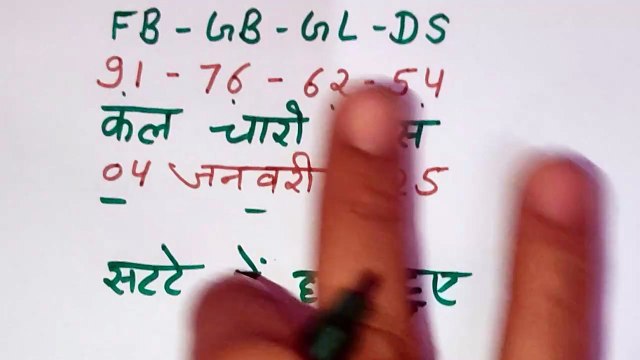 FB - GB - GL - DS
91 - 76 - 62 - 54
कल चारो
04 जनवरी 25
सटटे में